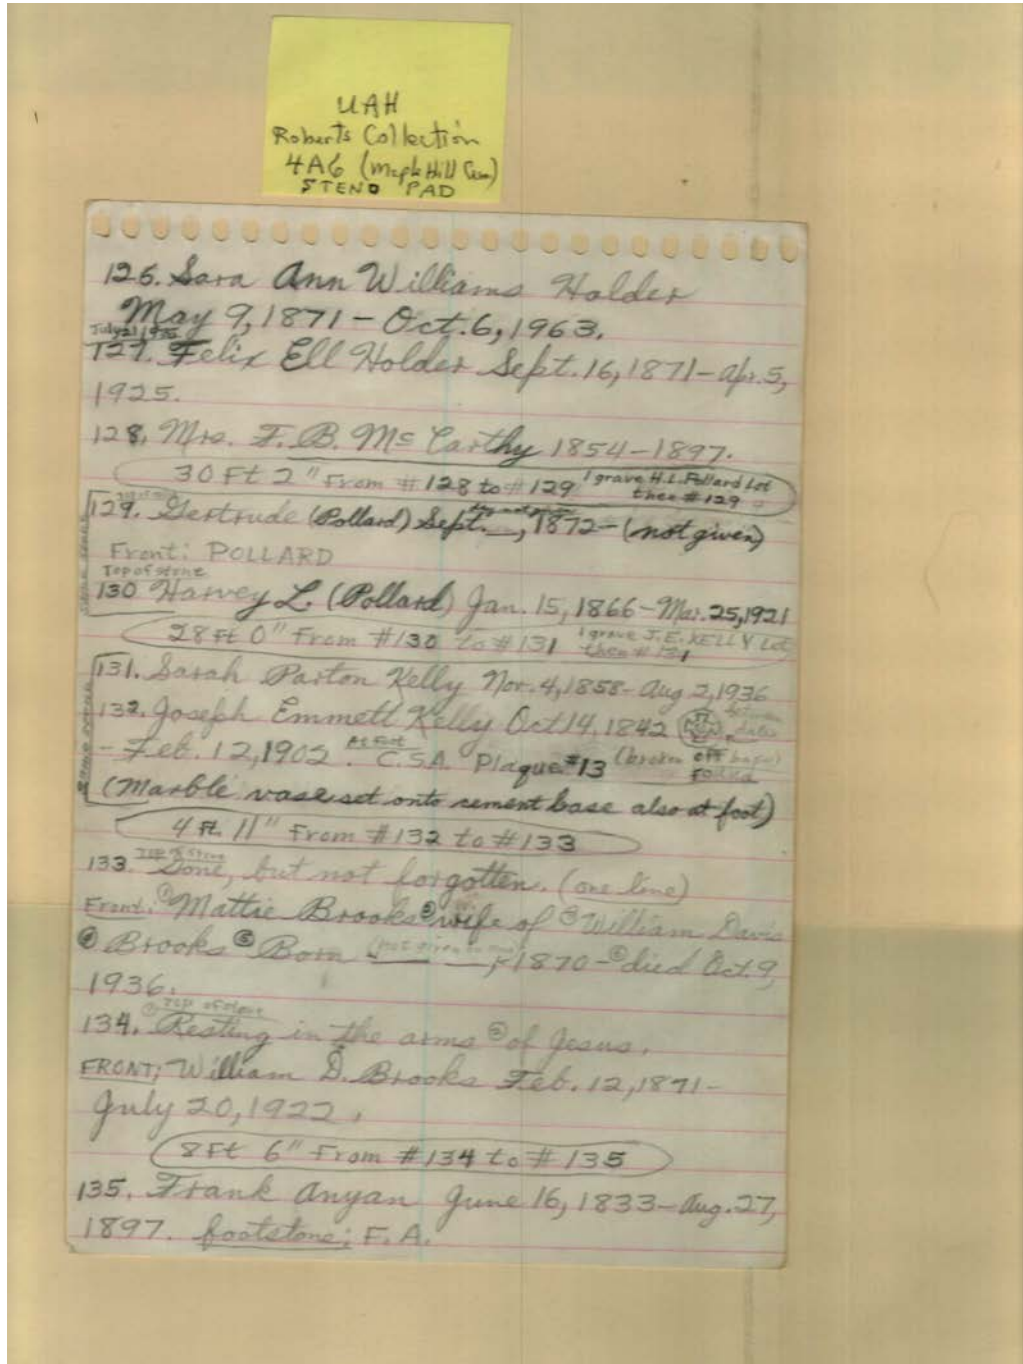 UAH
Roberts Collection
4A6 (Maple Hill Cem)
STENO PAD
126. Sara Ann Williams Holder
May 9, 1871 – Oct. 6, 1963.
July 21, 1975
127. Felix Ell Holder Sept. 16, 1871 – Apr. 5,
1925.
128. Mrs. F. B. McCarthy 1854 – 1897.
30 Ft 2" From #128 to #129 1 grave H.L. Pollard Lot
then #129
129. Gertrude (Pollard) Sept. __, 1872 – (not given)
Front: POLLARD
Top of stone
130 Harvey L. (Pollard) Jan. 15, 1866 – Mar. 25, 1921
28 Ft 0" From #130 to #131 1 grave J.E. KELLY Lot
then #131
131. Sarah Parton Kelly Nov. 4, 1858 – Aug 2, 1936
132. Joseph Emmett Kelly Oct 14, 1842 between dates
– Feb. 12, 1902. At foot C.S.A. Plaque #13 (broken off
(Marble vase set onto cement base also at foot)
4 Ft. 11" From #132 to #133
133. Top of stone Gone, but not forgotten. (one line)
Front: ① Mattie Brooks ② wife of ③ William Davis
④ Brooks ⑤ Born (not given __ __, 1870 – ⑥ died Oct. 9,
1936.
Top of stone
134. ① Resting in the arms ② of Jesus.
FRONT: William D. Brooks Feb. 12, 1871 –
July 20, 1922.
8 Ft 6" From #134 to #135
135. Frank Anyan June 16, 1833 – Aug. 27,
1897. footstone: F. A.